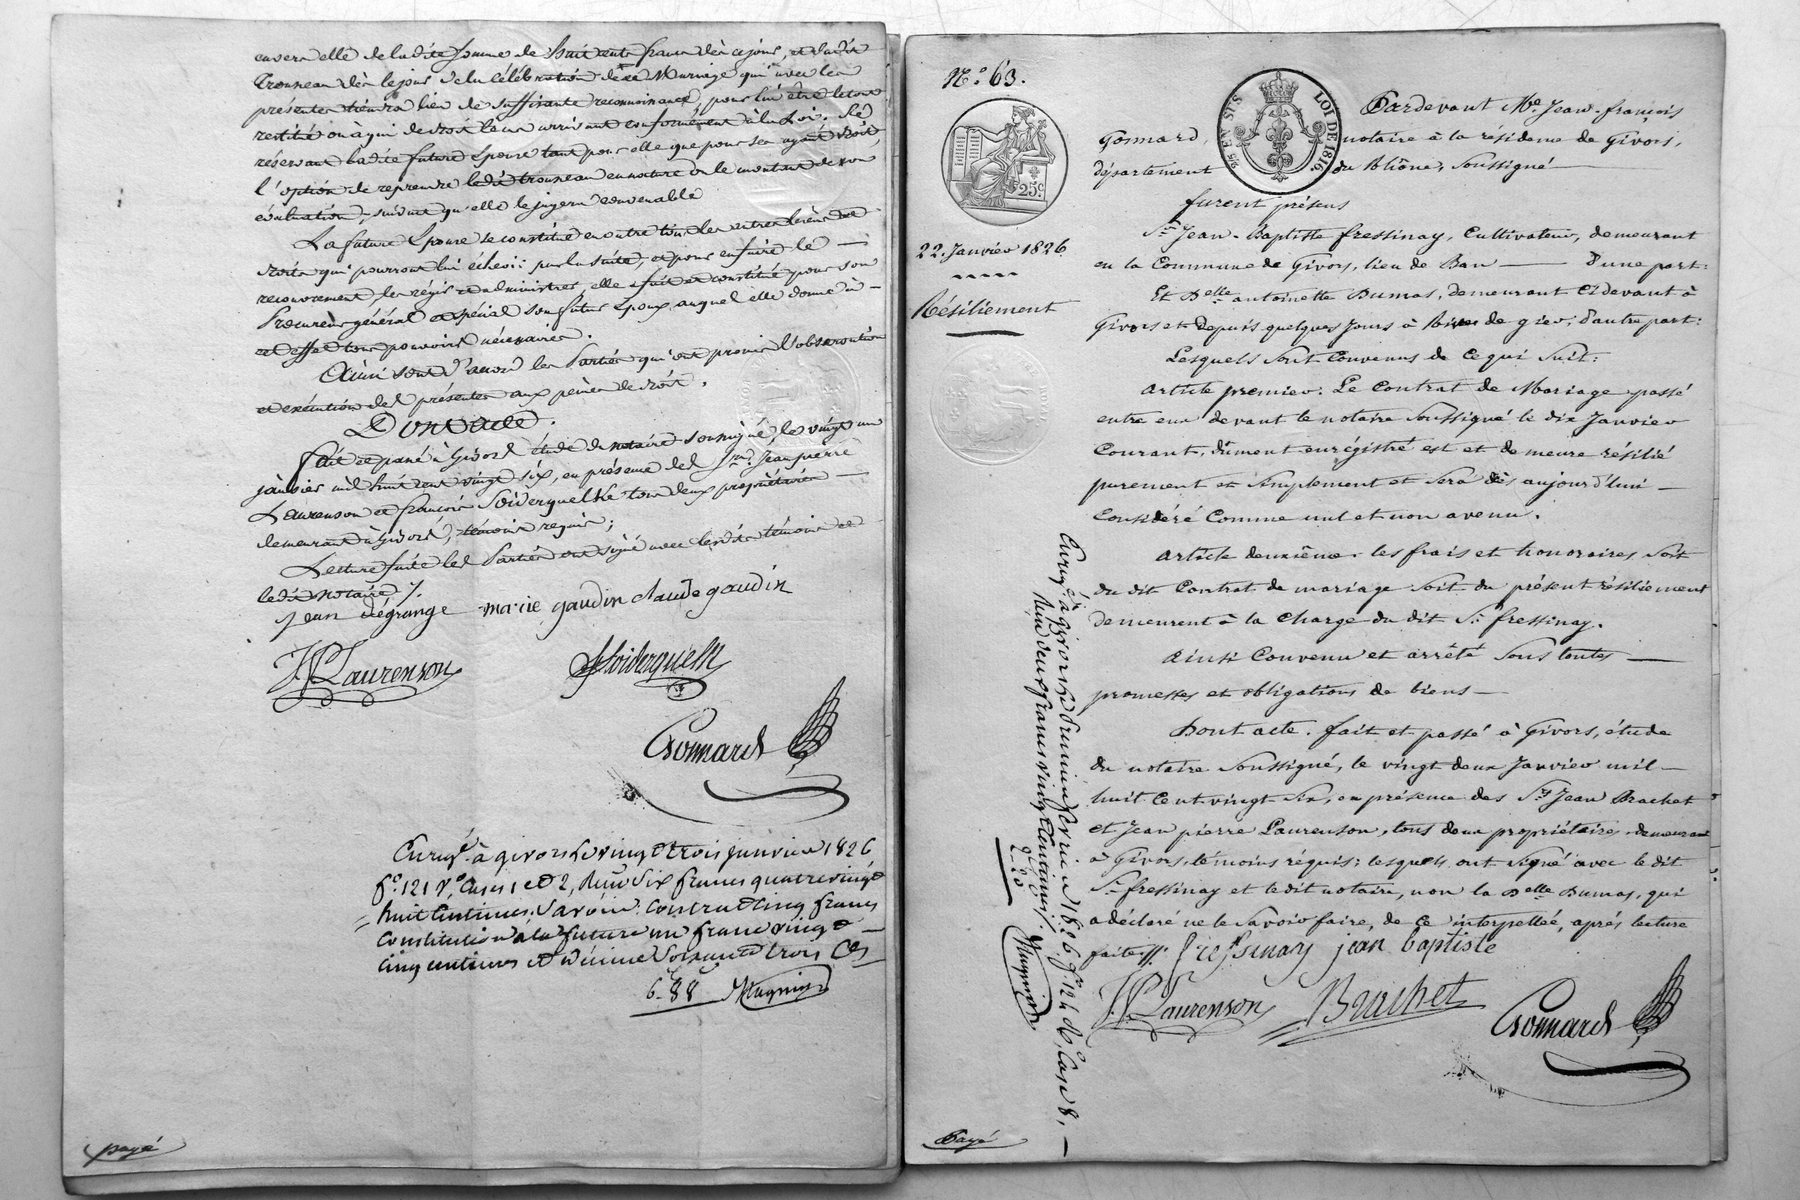 envers elle de la dite somme de huit cents francs dès ce jour, et du dit
trousseau dès le jour de la célébration de ce Mariage qui avec les
présentes tiendra lieu de suffisante reconnaissance, pour lui être le tout
restitué ou à qui de droit le cas arrivant conformément à la Loi. Se
réservant la dite future Epouse tant pour elle que pour ses ayant droit,
l'option de reprendre le dit trousseau en nature ou le montant de son
évaluation, suivant qu'elle le jugera convenable
La future Epouse se constitue en outre tous les autres biens et
droits qui pourront lui échoir par la suite, et pour en faire le
recouvrement, les régir et administrer, elle a fait et constitué pour son
Procureur général et spécial son futur Epoux, auquel elle donne à
cet effet tous pouvoirs nécessaires.
Ainsi sont d'accord les Parties qui ont promis l'observation
et exécution des présentes aux peines de droit.
Dont acte.
Fait et passé à Givors étude du notaire soussigné, le vingt un
janvier mil huit cent vingt six, en présence des Srs Jean pierre
Laurenson et francois Soiderquelk tous deux propriétaires
demeurant à Givors, témoins requis;
Lecture faite les Parties ont signé avec les dits témoins et
le dit notaire /.
Jean dégrange marie gaudin claude gaudin
J. P. Laurenson
fSoiderquelk
Gonnard
Enregé à givors le vingt trois janvier 1826
fo. 121 Vo. Cases 1 et 2, Reçu Six francs quatre vingt
huit Centimes, Savoir: Contrat cinq francs
Constitution à la future un franc vingt
cinq centimes et dixième Soixante trois Ces
6f 88 Magnin
payé
No. 63.
25c.
25 EN SUS
LOI DE 1816
22. Janvier 1826
Résiliement
Pardevant Me. Jean-françois
Gonnard, notaire à la résidence de Givors,
département du Rhône, Soussigné
furent présens
Sr. Jean-Baptiste fressinay, Cultivateur, demeurant
en la Commune de Givors, lieu de Ban d'une part:
Et Delle. antoinette Dumas, demeurant cidevant à
Givors et depuis quelques jours à Rive de gier, d'autre part:
Lesquels sont convenus de ce qui suit:
article premier. Le contrat de Mariage passé
entre eux devant le notaire soussigné le dix Janvier
Courant, dûment enrégistré est et demeure résilié
purement et simplement et sera dès aujourd'hui
considéré comme nul et non avenu.
article deuxième. les frais et honoraires soit
du dit Contrat de mariage soit du présent résiliement
demeurent à la charge du dit Sr. fressinay.
ainsi convenu et arrêté sous toutes
promesses et obligations de biens
Dont acte. fait et passé à Givors, étude
du notaire soussigné, le vingt deux Janvier mil
huit cent vingt six, en présence des Srs Jean Brachet
et Jean pierre Laurenson, tous deux propriétaires demeurant
à Givors, témoins réquis; lesquels ont signé avec le dit
Sr. fressinay et le dit notaire, non la Delle Dumas, qui
a déclaré ne le savoir faire, de ce interpellée, après lecture
faite /. fressinay jean baptiste
J. P. Laurenson Brachet Gonnard
Enregé à givors le premier février 1826. fo. 124 Vo. Case 8,
Reçu deux francs vingt centimes. Magnin
2.20
Payé